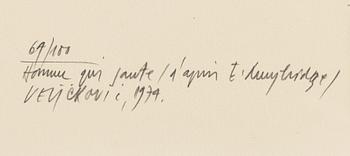 69/100
Homme qui saute / d'après E. Muybridge /
VELIČKOVIĆ, 1974.